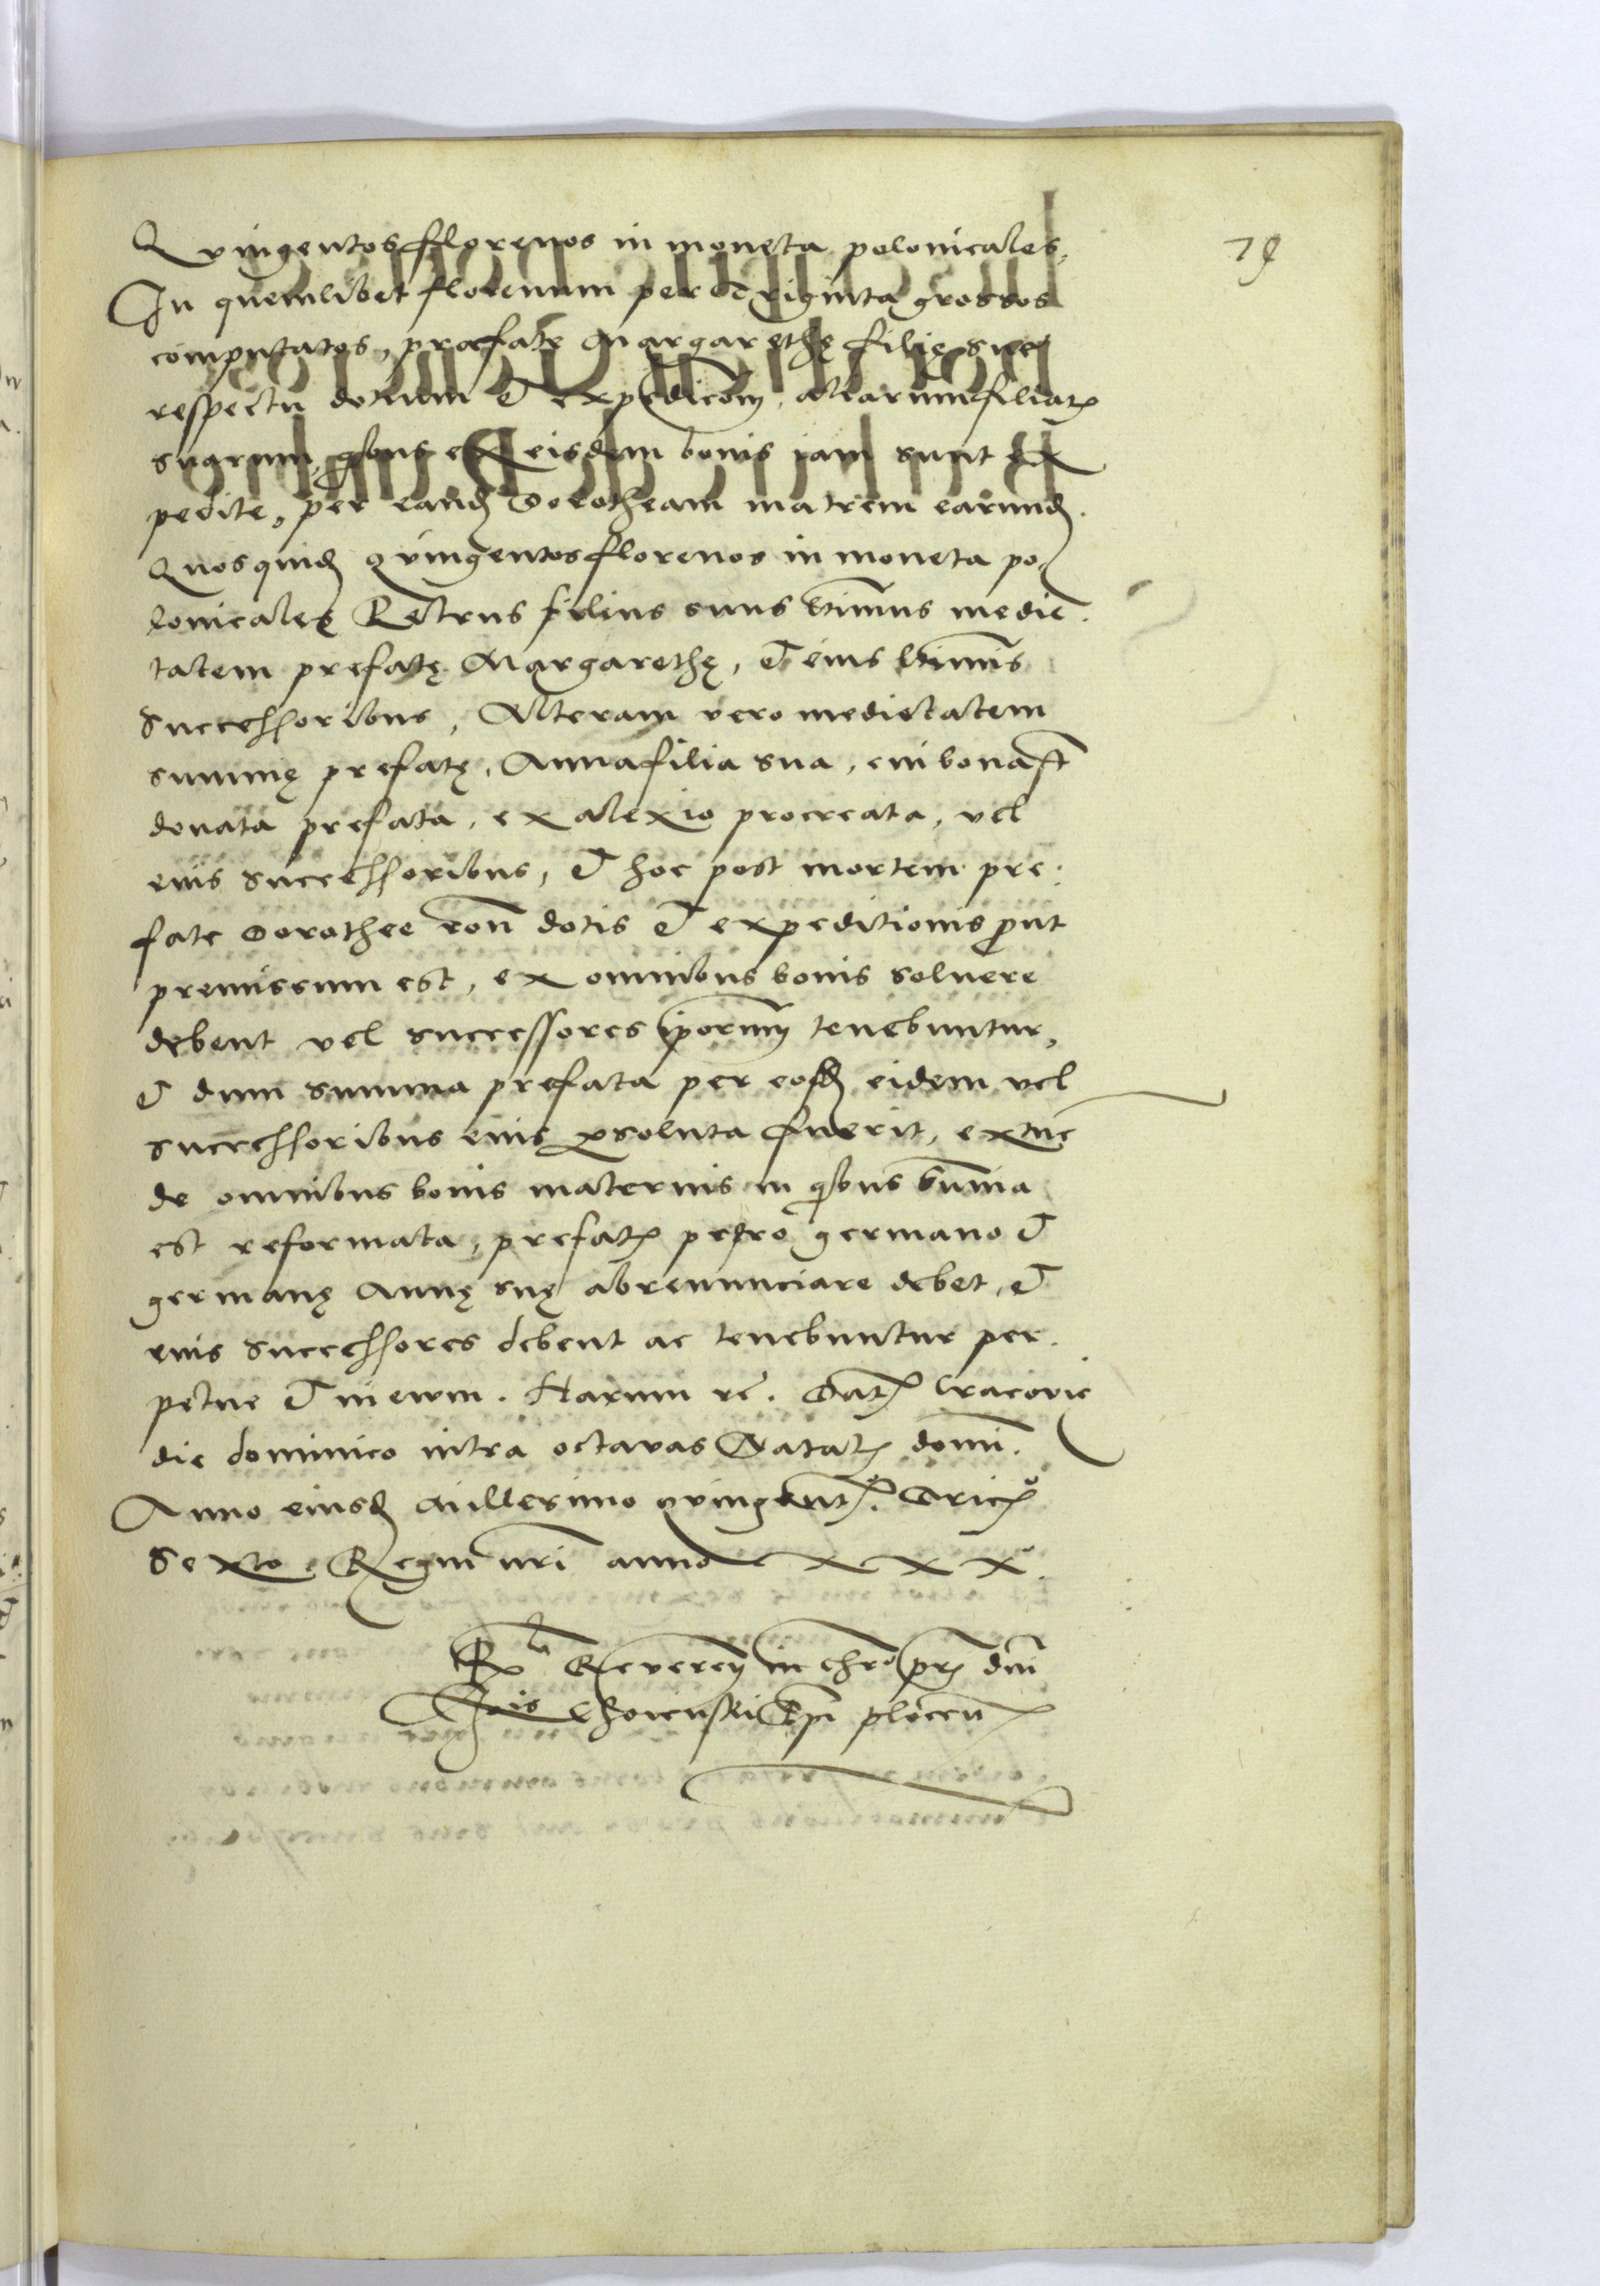 79
Quingentos florenos in moneta polonicales,
In quemlibet florenum per Triginta grossos
computatos, præfate Margarethę filię suę
respectu dotum et expedicom, aliarum filiaꝝ
suarum, qbus ex eisdem bonis iam sunt ex
pedite, per eand Dorotheam matrem earund.
Quosquid quingentos florenos in moneta po
lonicales Petrus filius suus vtinus medie
tatem prefatę Margarethę, et eius ltimis
successoribus, Alteram vero medietatem
summę prefatę, Anna filia sua, cui bona st
donata prefata, ex alexio procreata, vel
eius successoribus, et hoc post mortem pre
fate Dorothee ron dotis et expeditionis prout
premissum est, ex omnibus bonis soluere
debent vel successores iporum tenebuntur,
et dum summa prefata per eosd eidem vel
successoribus eius psoluta fuerit, extuc
de omnibus bonis maternis in qbus summa
est reformata, prefatꝫ petro germano et
germanę Annę suę abrenunciare debet, et
eius successores debent ac tenebuntur per
petue et in ewm. Harum rē. Datꝫ Cracovie
die dominico intra octavas Natalꝫ domi.
Anno eiusd Millesimo quingentꝫo. Tricꝫo
Sexto. Regni nri anno xxx.
Rlo Reveren in chro pris dni
Jois Choienski Epi plocen